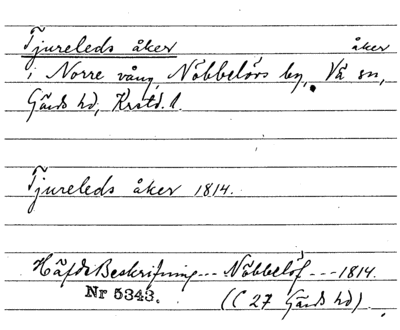 Tjureleds åker åker
i Norre vång, Nöbbelövs by, Vä sn,
Gärds hd, Krstd. l.
Tjureleds åker 1814.
Häfde Beskrifning --- Nöbbelöf --- 1814.
Nr 5343. (C 27 Gärds hd)